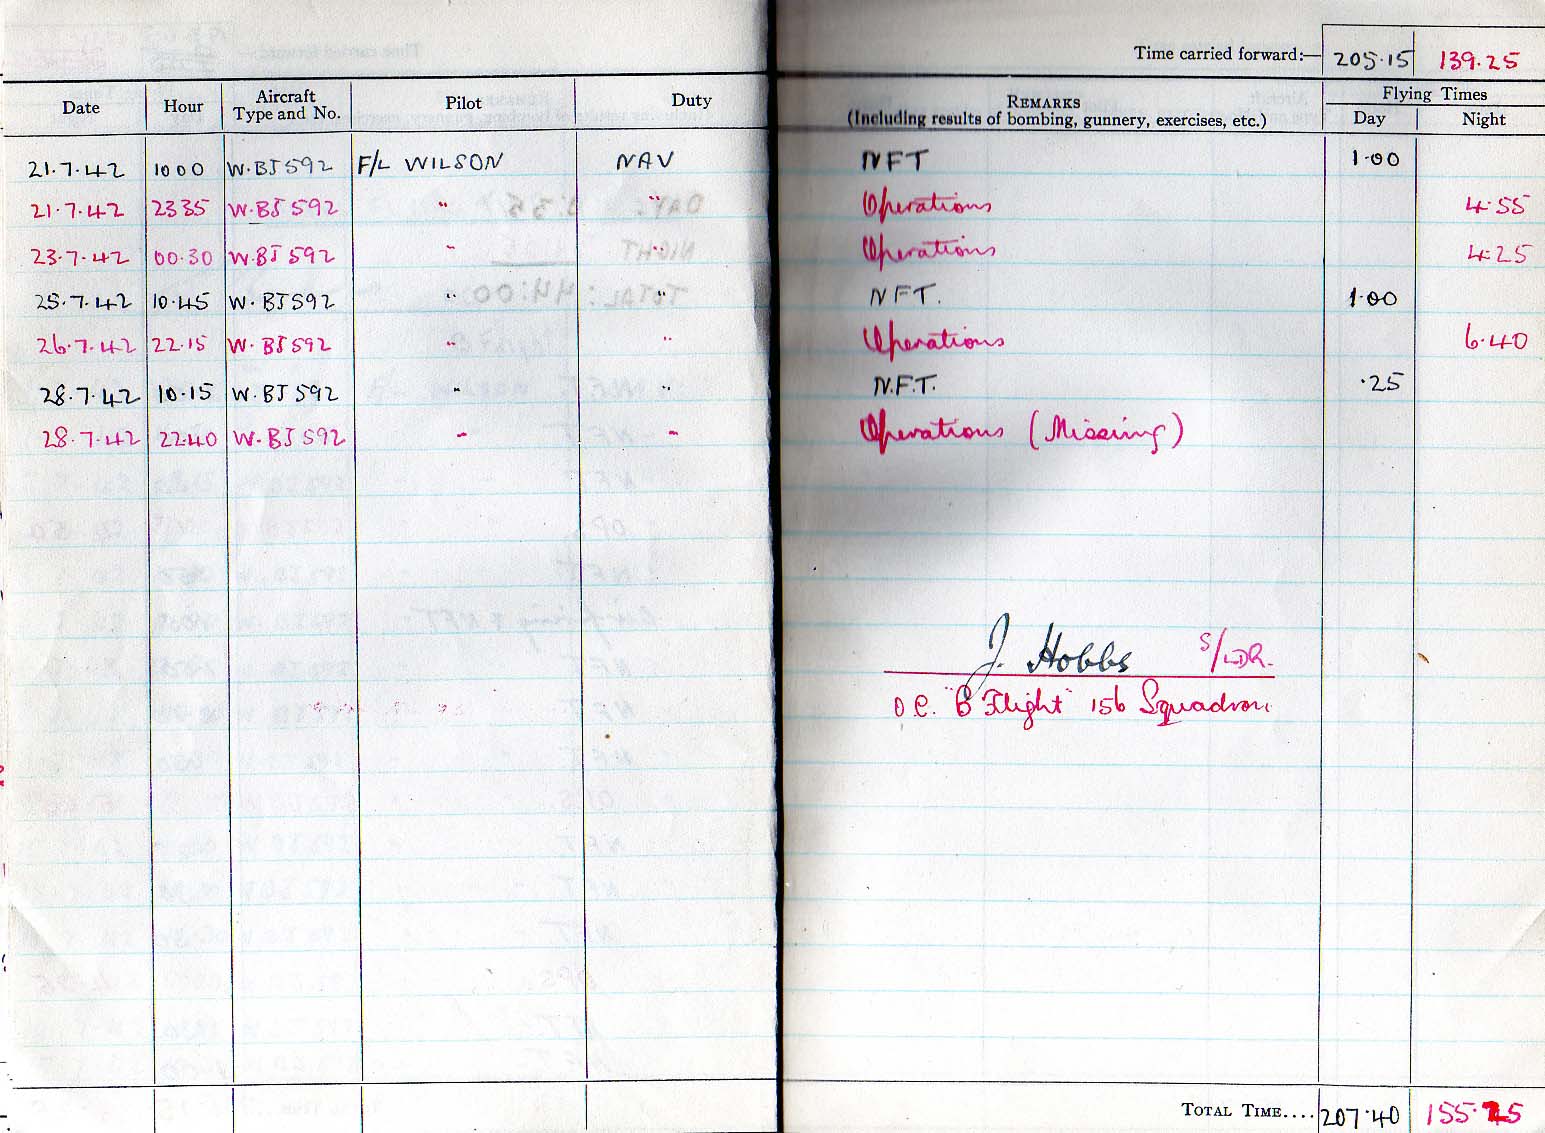 Time carried forward:— 205.15 139.25
Date Hour Aircraft Type and No. Pilot Duty REMARKS (Including results of bombing, gunnery, exercises, etc.) Flying Times Day Night
21.7.42 1000 W.BJ592 F/L WILSON NAV NFT 1.00
21.7.42 2335 W.BJ592 " " Operations 4.55
23.7.42 00.30 W.BJ592 " " Operations 4.25
25.7.42 10.45 W.BJ592 " " NFT. 1.00
26.7.42 22.15 W.BJ592 " " Operations 6.40
28.7.42 10.15 W.BJ592 " " N.F.T. .25
28.7.42 2240 W.BJ592 " " Operations (Missing)
J. Hobbs S/LDR.
O.C. "B Flight" 156 Squadron
TOTAL TIME.... 207.40 155.25